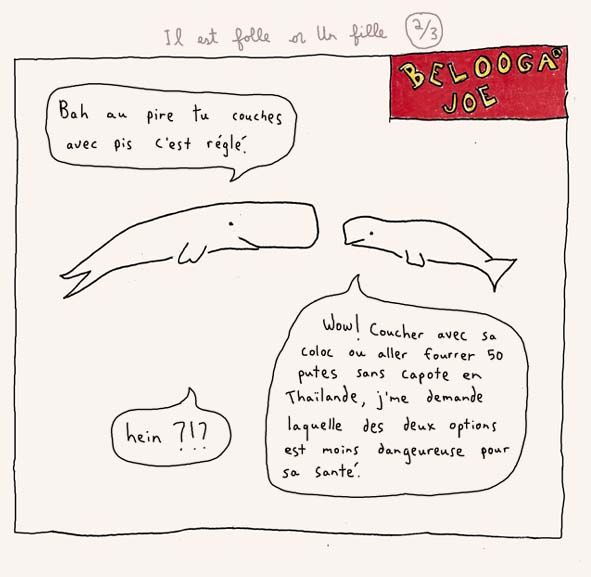 Il est folle or Un fille 2/3
BELOOGA®
JOE
Bah au pire tu couches
avec pis c'est réglé.
Wow! Coucher avec sa
coloc ou aller fourrer 50
putes sans capote en
Thaïlande, j'me demande
laquelle des deux options
est moins dangeureuse pour
sa santé.
hein ?!?